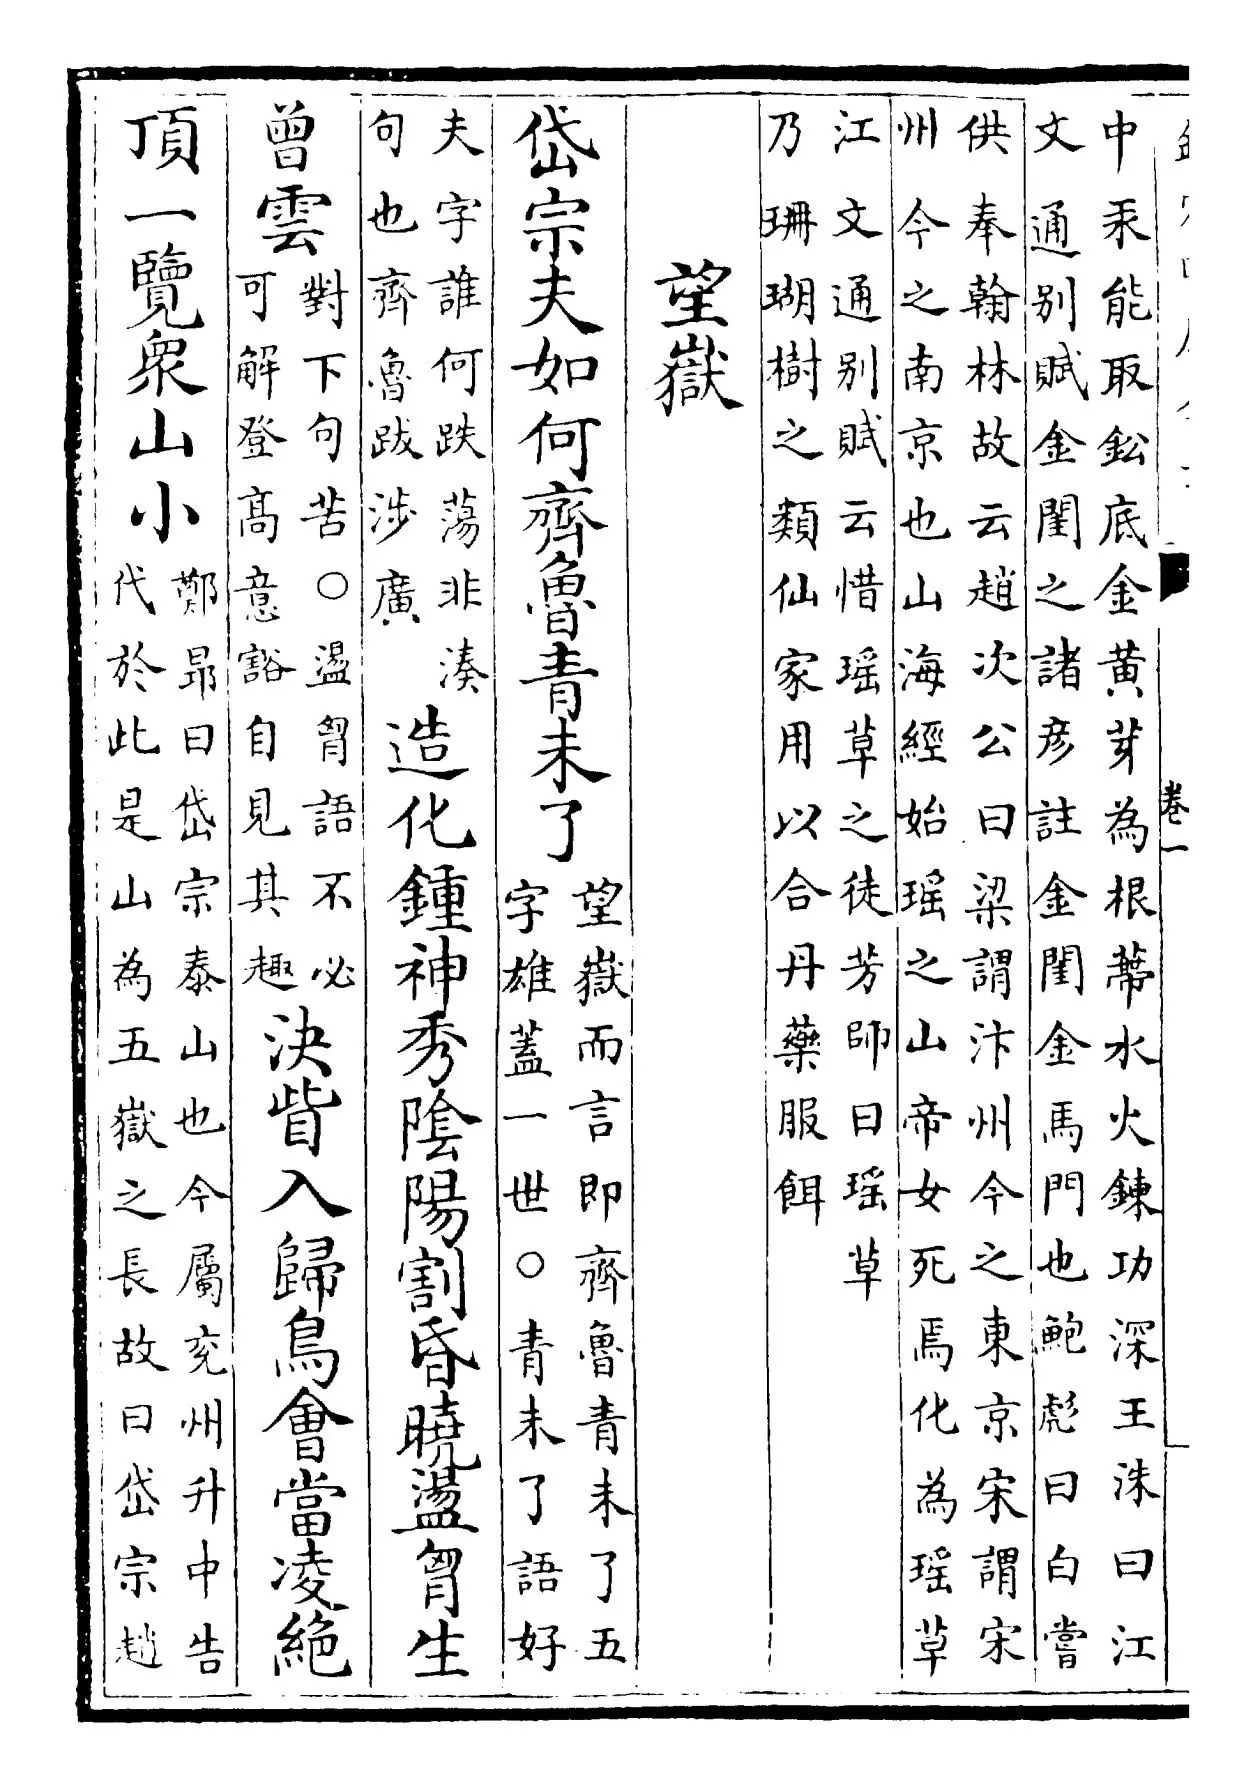 卷一
中汞能取鈆底金黃芽為根蔕水火鍊功深王洙曰江
文通别賦金閨之諸彦註金閨金馬門也鮑彪曰白嘗
供奉翰林故云趙次公曰梁謂汴州今之東京宋謂宋
州今之南京也山海經始瑶之山帝女死焉化為瑶草
江文通别賦云惜瑶草之徒芳師曰瑶草
乃珊瑚樹之類仙家用以合丹藥服餌
望嶽
岱宗夫如何齊魯青未了
望嶽而言即齊魯青未了五
字雄蓋一世○青未了語好
夫字誰何跌蕩非凑
句也齊魯跋涉廣
造化鍾神秀陰陽割昏曉盪胷生
曾雲
對下句苦○盪胷語不必
可解登髙意豁自見其趣
決眥入歸鳥會當凌絶
頂一覽衆山小
鄭昻曰岱宗泰山也今屬兖州升中告
代於此是山為五嶽之長故曰岱宗趙